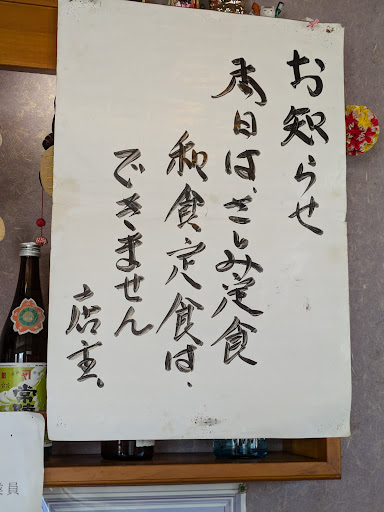 お知らせ
本日は、さしみ定食
和食定食は、
できません
店主
業員